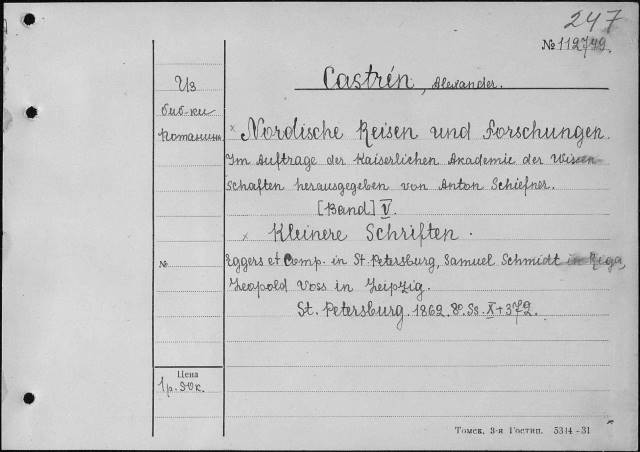 247
№ 112799.
Castrén, Alexander.
Из
биб-ки
Потанина
× Nordische Reisen und Forschungen.
Im Auftrage der Kaiserlichen Akademie der Wissen-
schaften herausgegeben von Anton Schiefner.
[Band] V.
× Kleinere Schriften.
№
Eggers et Comp. in St. Petersburg, Samuel Schmidt in Riga,
Leopold Voss in Leipzig.
St. Petersburg. 1862. 8º. Ss. X+372.
Цена
1 р. 90к.
Томск, 3-я Гостип. 5314-31